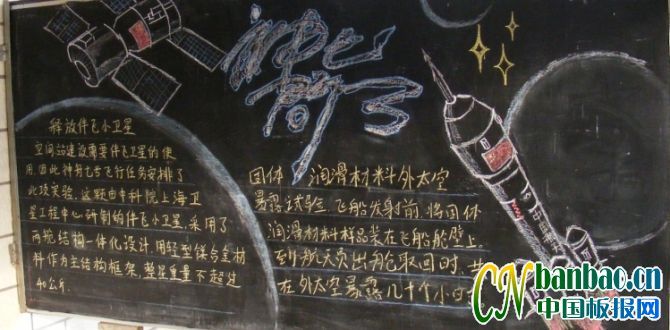 神七
问天
释放伴飞小卫星
空间站建设需要伴飞卫星的使
用,因此神舟七号飞行任务安排了
此项实验。这颗由中科院上海卫
星工程中心研制的伴飞小卫星,采用了
两舱结构一体化设计,用轻型镁合金材
料作为主结构框架,整星重量不超过
40公斤.
固体 润滑材料外太空
暴露试验 飞船发射前,将固体
润滑材料样品装在飞船舱壁上
到航天员出舱取回时,共
在外太空暴露几十个小时
中国航天
CN banbao.cn
中国板报网